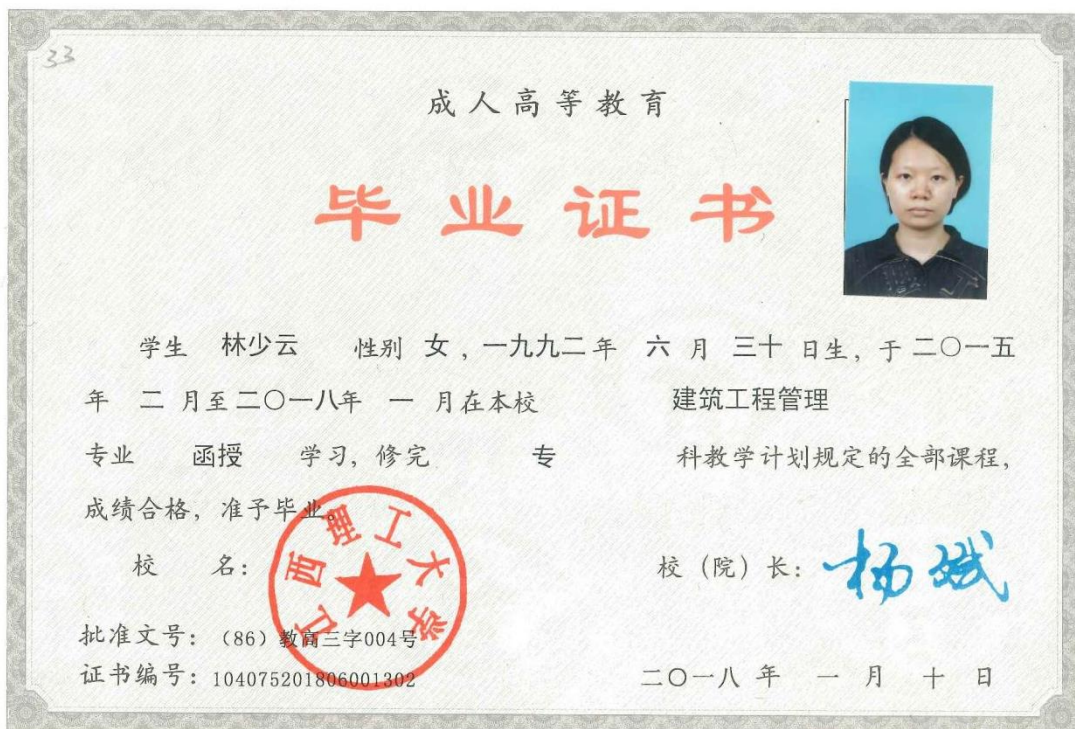 33
成人高等教育
毕业证书
学生 林少云 性别 女，一九九二年 六 月 三十 日生，于二〇一五
年 二 月至二〇一八年 一 月在本校 建筑工程管理
专业 函授 学习，修完 专 科教学计划规定的全部课程，
成绩合格，准予毕业。
校 名： 江西理工大学 校（院）长：杨斌
批准文号：（86）教高三字004号
证书编号：104075201806001302 二〇一八 年 一 月 十 日